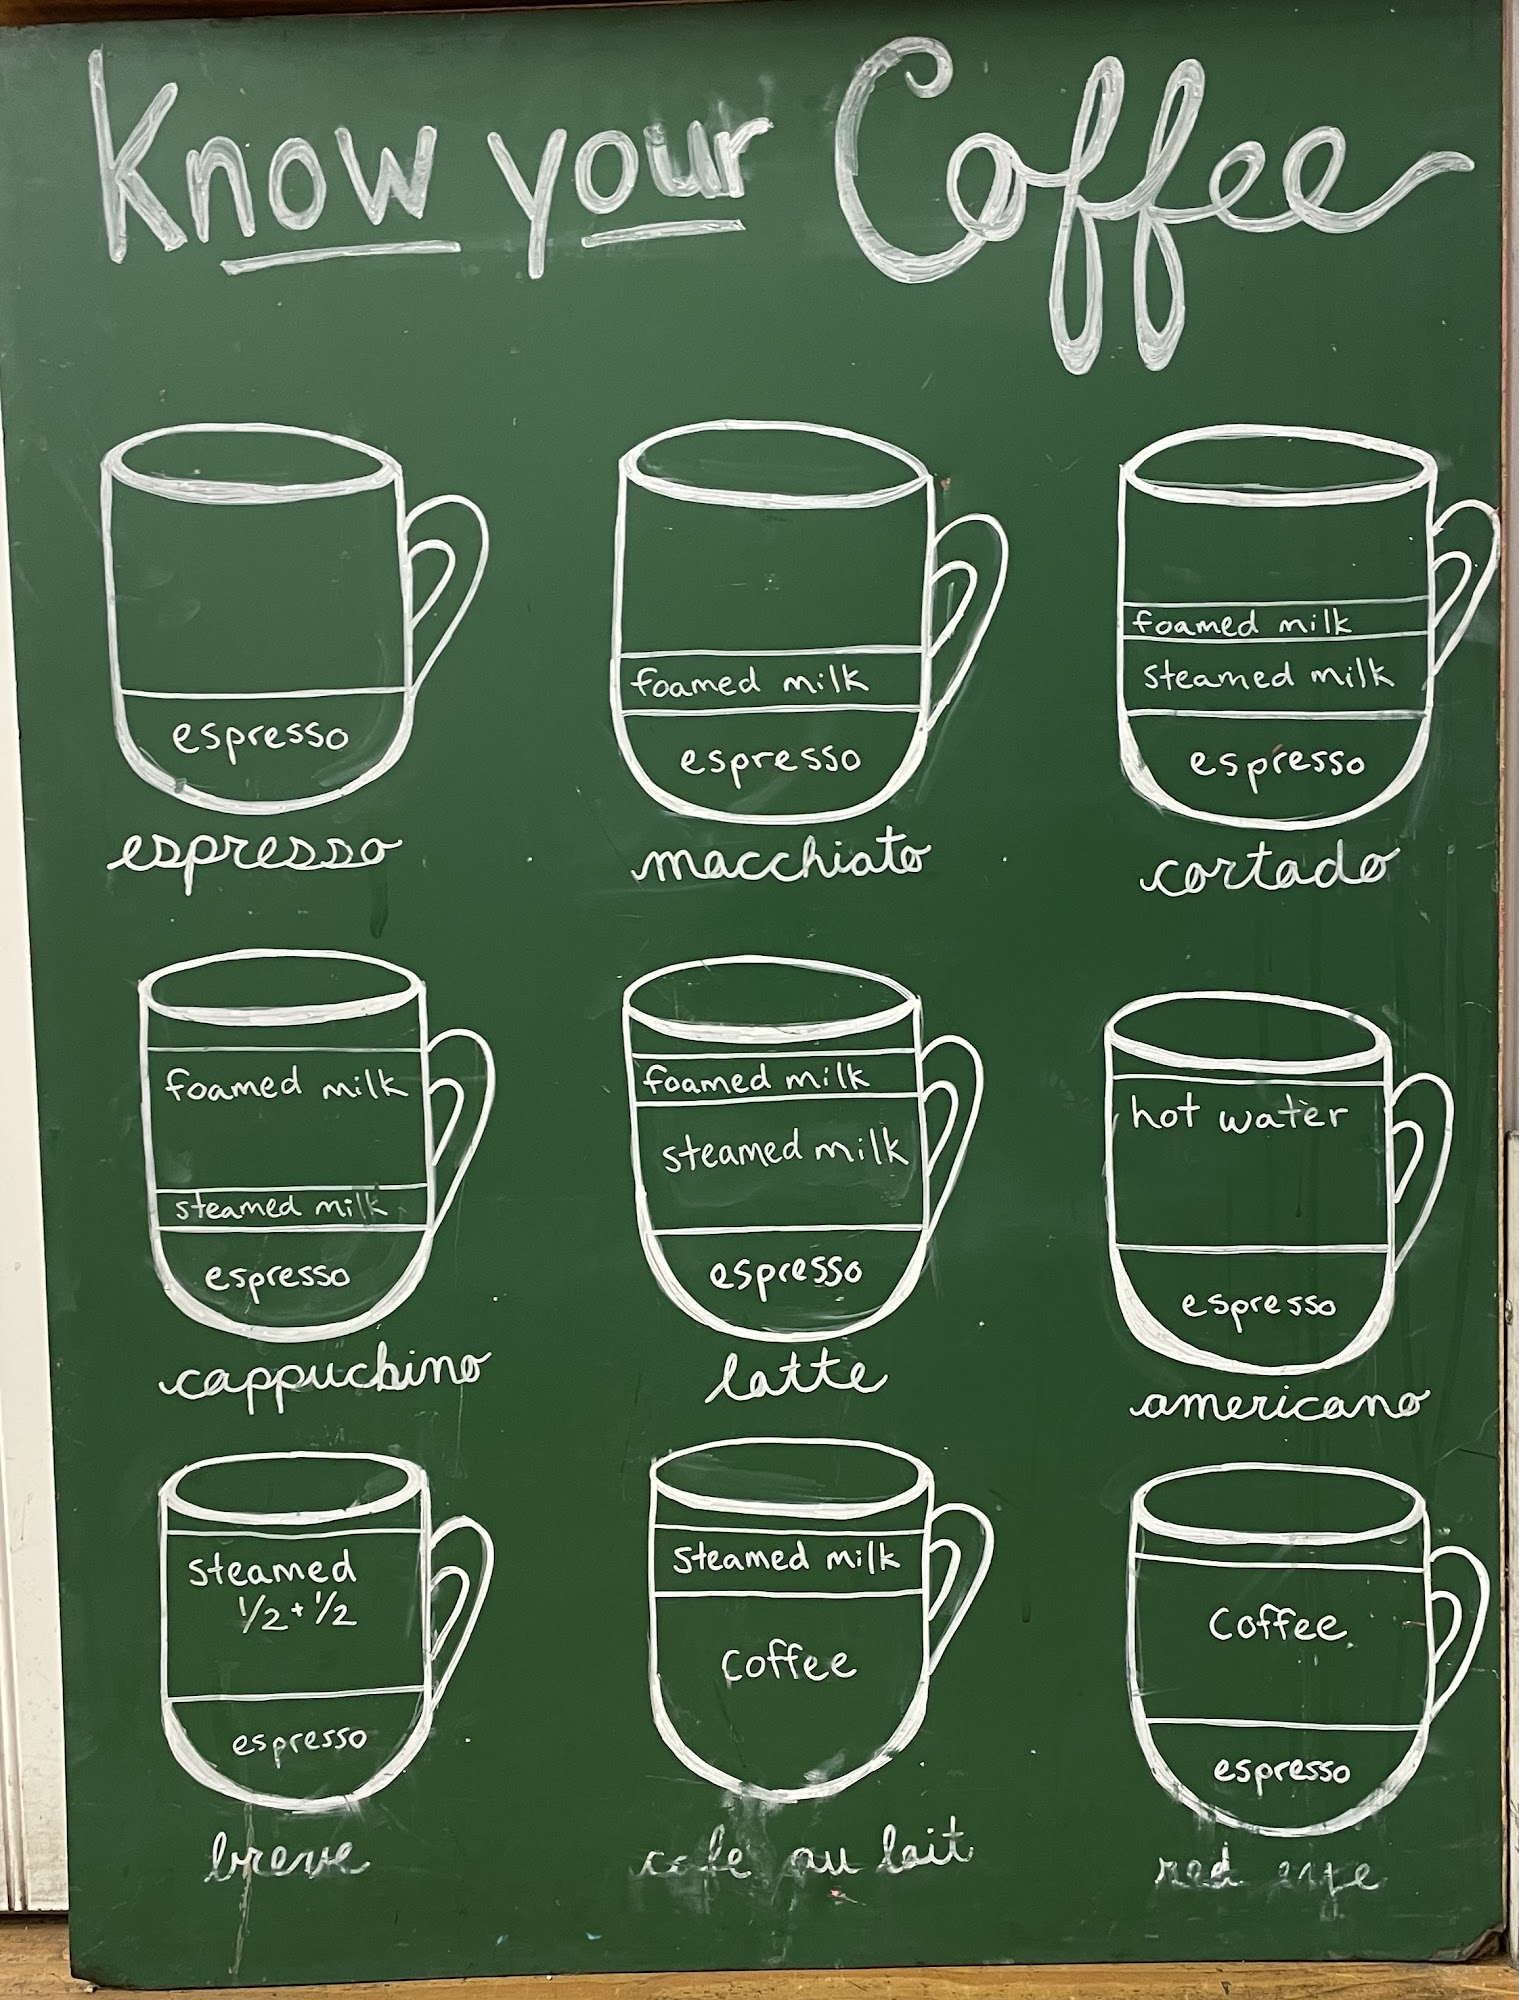 Know your Coffee
espresso
espresso
foamed milk
espresso
macchiato
foamed milk
steamed milk
espresso
cortado
foamed milk
steamed milk
espresso
cappuchino
foamed milk
steamed milk
espresso
latte
hot water
espresso
americano
steamed
1/2 + 1/2
espresso
breve
steamed milk
coffee
cafe au lait
Coffee
espresso
red eye